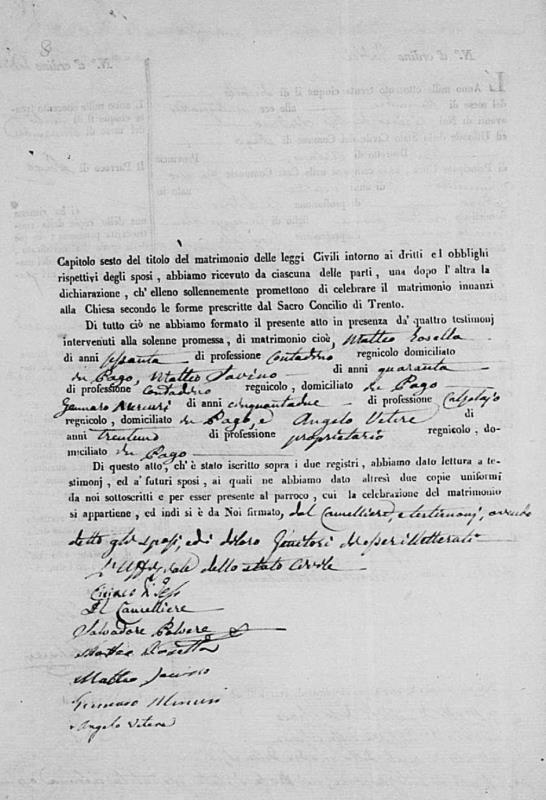 8
N.° d' ordine
Capitolo sesto del titolo del matrimonio delle leggi Civili intorno ai dritti ed obblighi
rispettivi degli sposi, abbiamo ricevuto da ciascuna delle parti, una dopo l'altra la
dichiarazione, ch' elleno sollennemente promettono di celebrare il matrimonio innanzi
alla Chiesa secondo le forme prescritte dal Sacro Concilio di Trento.
Di tutto ciò ne abbiamo formato il presente atto in presenza da' quattro testimonj
intervenuti alla solenne promessa, di matrimonio cioè, Matteo Rosella
di anni sessanta di professione Contadino regnicolo domiciliato
in Pago, Matteo Savino di anni quaranta
di professione Contadino regnicolo, domiciliato in Pago
Gennaro Mercuri di anni cinquantadue di professione Calzolajo
regnicolo, domiciliato in Pago, e Angelo Vetere di
anni trentuno di professione proprietario regnicolo, do-
miciliato in Pago
Di questo atto, ch'è stato iscritto sopra i due registri, abbiamo dato lettura a te-
stimonj, ed a' futuri sposi, ai quali ne abbiamo dato altresì due copie uniformi
da noi sottoscritti e per esser presente al parroco, cui la celebrazione del matrimonio
si appartiene, ed indi si è da Noi firmato, dal Cancelliere, e testimonj, avendo
detto gli sposi, ed i di loro Genitori di essere illetterati
L'Uffiziale dello stato Civile
Il Cancelliere
Salvadore Polvere
Matteo Rosella
Matteo Savino
Gennaro Mercuri
Angelo Vetere